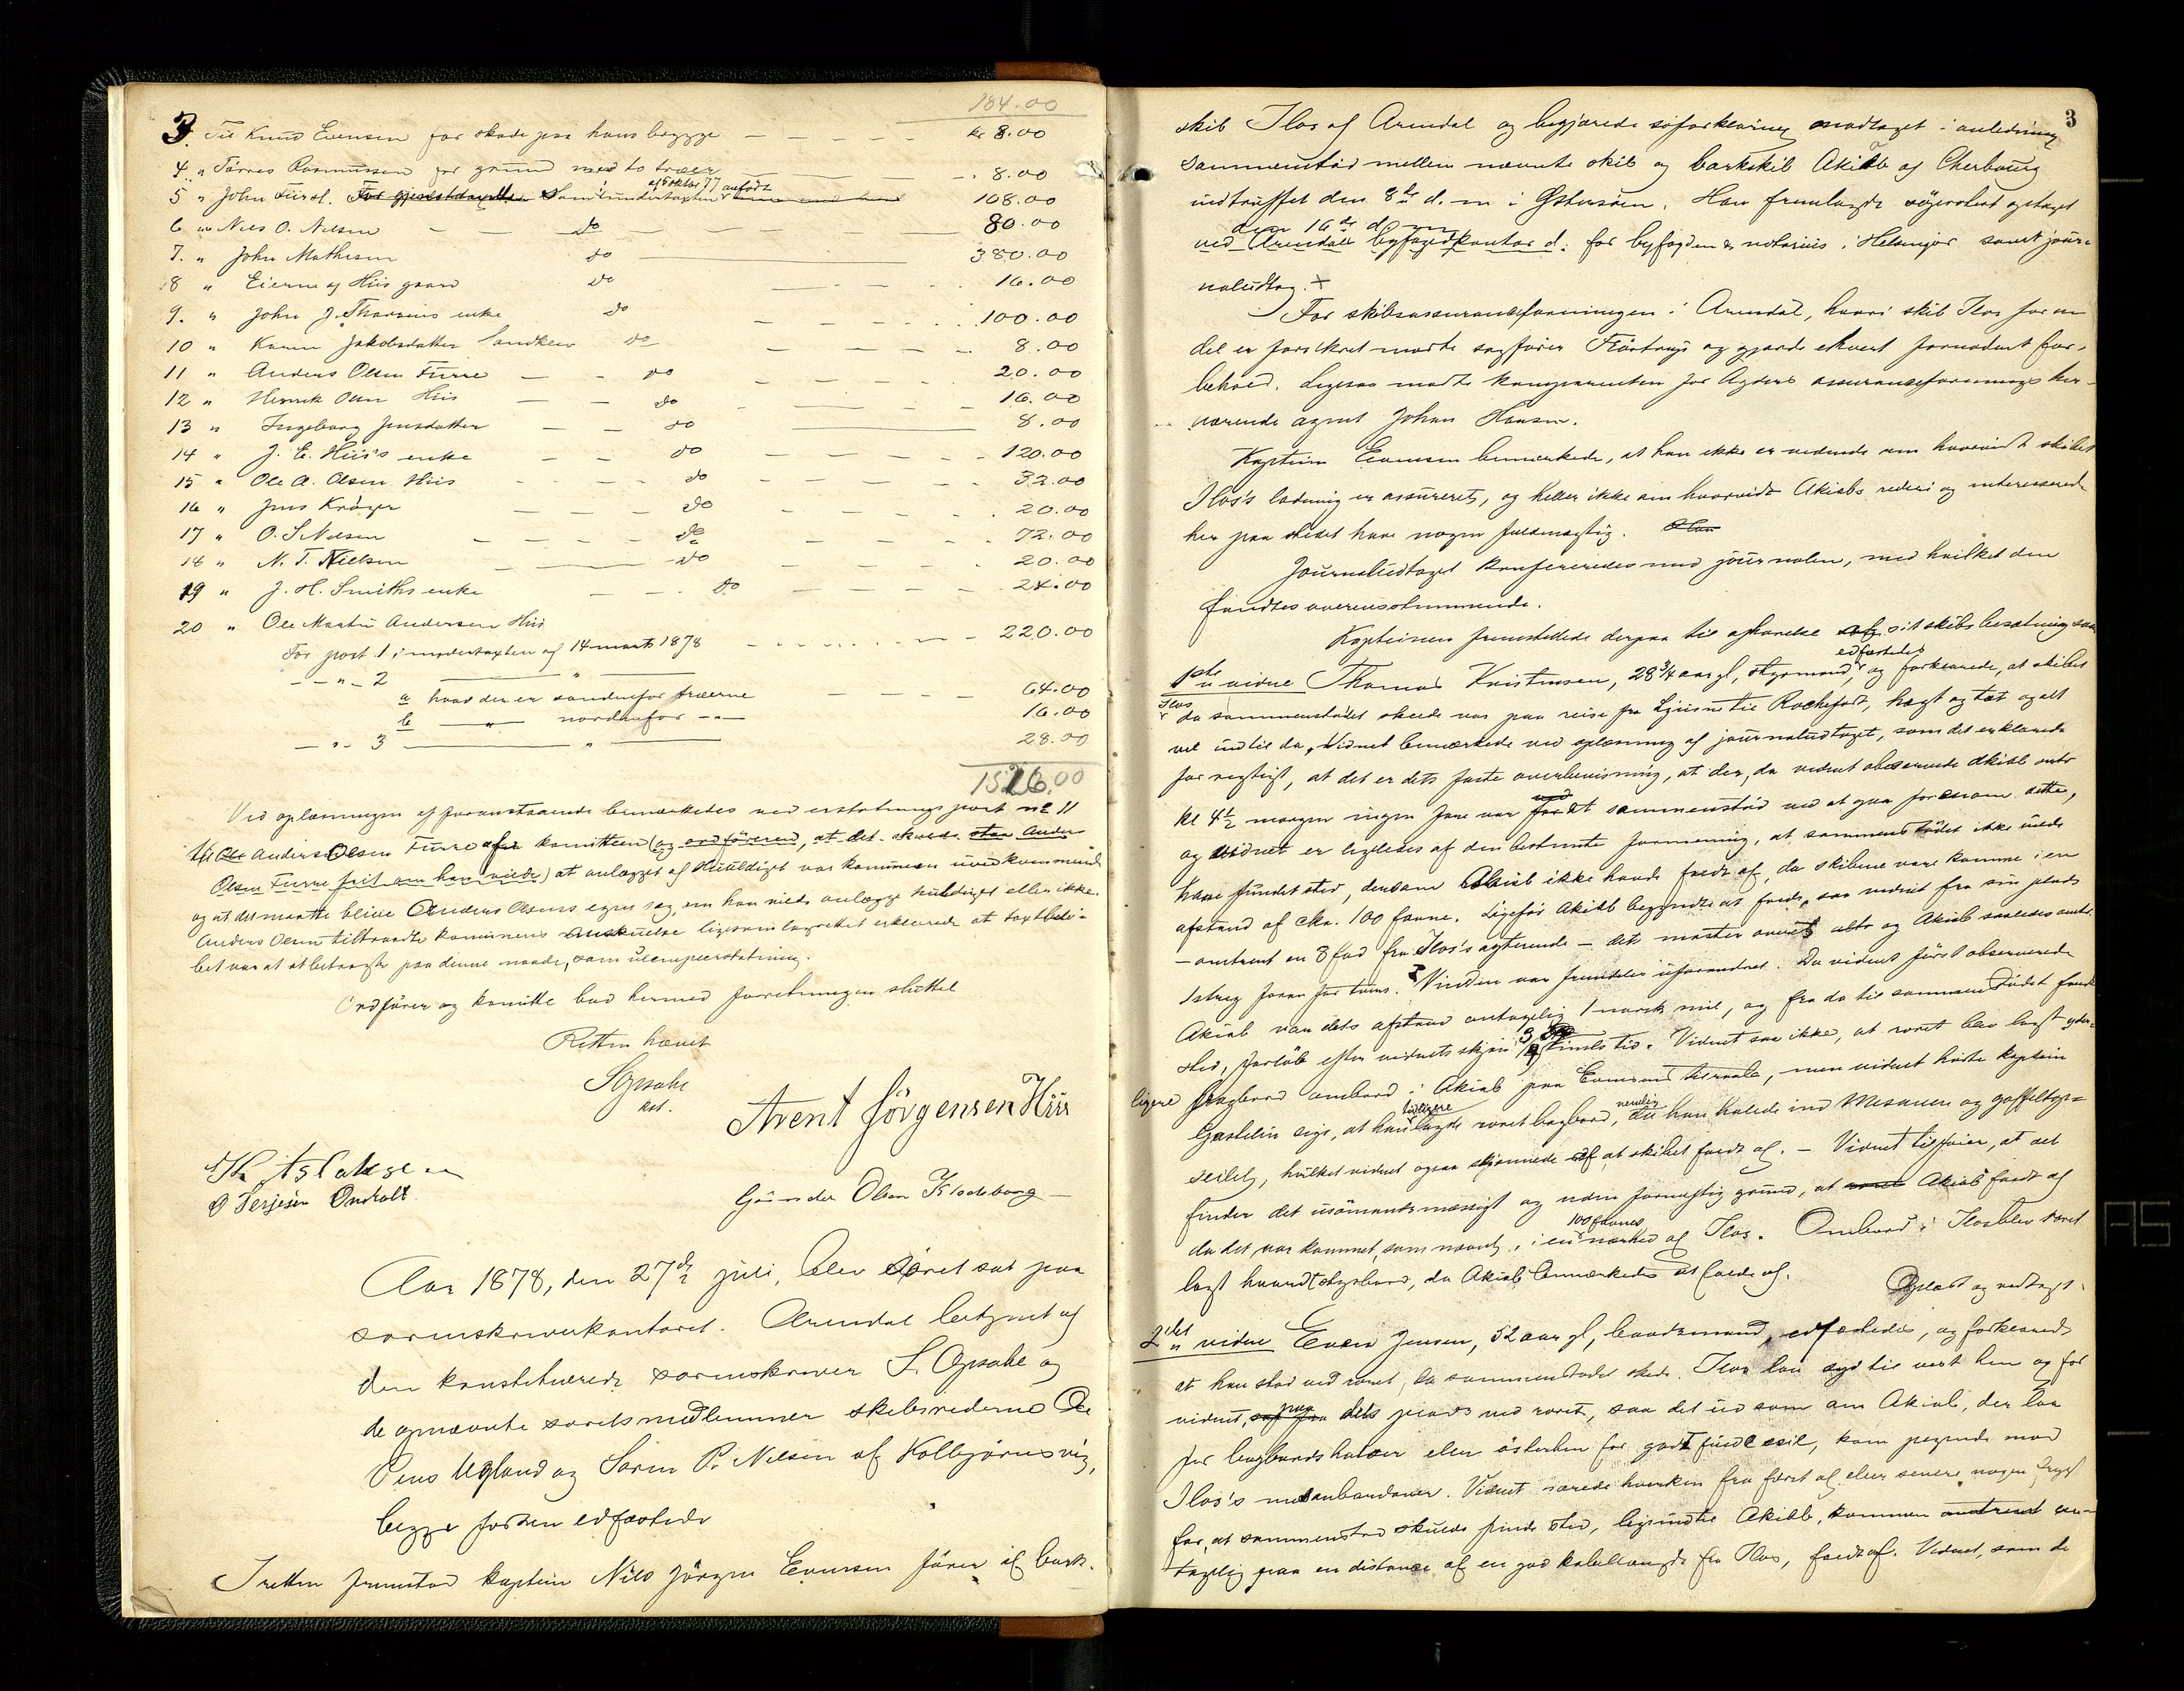 184.00
3. Til Knud Evensen for skade paa hans brygge — — — kr 8.00
4 „ Tørres Rasmussen for grund med to træer — 8.00
5 „ John Fürst. Som i undertaxten af 5 oktbr 77 anført 108.00
6 „ Nils O. Nilsen — — do — — 80.00
7. „ John Mathisen do — 380.00
8 „ Eierne af Hiis gaard do — 16.00
9. „ John J. Thorsens enke do — 100.00
10 „ Karen Jakobsdatter Sandklev do — 8.00
11 „ Anders Olsen Furre — do — 20.00
12 „ Henrik Olsen Hiis — do — 16.00
13 „ Ingeborg Jensdatter — do — 8.00
14 „ J. E. Hiis's enke — do — 120.00
15 „ Ole A. Olsen Hiis — do — 32.00
16 „ Jens Kröger — do — 20.00
17 „ O. S. Nilsen — do — 72.00
18 „ N. T. Nielsen — do — 20.00
19 „ J. H. Smiths enke — do — 24.00
20 „ Ole Martin Andersen Hiis
For post 1 i undertaxten af 14 marts 1878 — 220.00
— „ — 2 — „ —
a hvad der er søndenfor træerne — 64.00
b — „ — nordenfor — „ — 16.00
— „ — 3 — „ — 28.00
1526.00
Ved oplæsningen af foranstaaende bemærkedes ved erstatningspost no 11
til Anders Olsen Furre af komitteen (og ordføreren, at det skulde staa Anders
Olsen Furre frit om han vilde) at anlægget af skuldiget var kommunen uvedkommende
og at det maatte blive Anders Olsens egen sag, om han vilde anlægge huldiget eller ikke.
Anders Olsen tiltraadte kommunens anskuelse ligesom lagrettet erklærede at taxtbelø-
bet var at betragte paa denne maade, som ulempeerstatning.
Ordfører og komitte bad hermed forretningen sluttet
Retten hævet
S Opsahl
kst.
Arent Jörgensen Hiis
O Terjesen Ondalt
Gunder Olsen Klodeborg
Aar 1878, den 27de juli, blev søret sat paa
sorenskriverkontoret. Arendal betjent af
den konstituerede sorenskriver S. Opsahl og
de opnævnte søretsmedlemmer skibsrederne Ole
Ugland og Søren P. Nilsen af Kolbjørnsvig,
begge forhen edfæstede
I retten fremstod kaptein Nils Jörgen Evensen förer af bark-
3
skib Ilos af Arendal og begjærede söforklaring modtaget i anledning
sammenstöd mellem nævnte skib og barkskib Akiab af Cherbourg
indtruffet den 8de d. m i Østersöen. Han fremlagde söprotest optaget
den 16de d. m
ved Arendals byfogedkontor d. for byfogden & notarius i Helsingør samt jour-
naludtog. +
For skibsassuranceforeningen i Arendal, hvori skib Ilos for en
del er forsikret mødte sagfører og gjorde ethvert fornødent for-
behold. Ligesaa mødte komparenten for Agders assuranceforenings her-
værende agent Johan Hansen.
Kaptein Evensen bemærkede, at han ikke er vidende om hvorvidt skibet
Ilos's ladning er assureret, og heller ikke om hvorvidt Akiabs rederi og interesserede
her paa stedet have nogen fuldmægtig. Han
Journaludtoget konfereredes med journalen, med hvilket den
fandtes overensstemmende.
Kapteinen fremstillede derpaa til afhørelse sit skibs besætning som
edfæstedes
1ste vidne Thomas Kristensen, 28 3/4 aar gl, styrmand, og forklarede, at skibet
Ilos
da sammenstødet skede var paa reise fra Ljusne til Rochefort, tægt og tæt og alt
vel indtil da. Vidnet bemærkede ved oplæsning af journaludtoget, som det erklærede
for rigtigt, at det er dets faste overbevisning, at der, da vidnet observerede Akiab omtr
kl 4 1/2 morgen ingen fare var for et sammenstød ved at gaa forenom dette,
og vidnet er ligeledes af den bestemte formening, at sammenstødet ikke vilde
have fundet sted, dersom Akiab ikke havde faldt af, da skibene vare komne i en
afstand af cha. 100 favne. Ligeför Akiab begyndte at falde, saa vidnet fra sin plads
— omtrent en 8 fod fra Ilos's agterende — dets master overet og Akiab saaledes omtr.
1 streg foran for tvers. Vinden var fremdeles uforandret. Da vidnet først observerede
Akiab var dets afstand antagelig 1 norsk mil, og fra da til sammenstødet fandt
sted, forløb efter vidnets skjøn 3/4 times tid. Vidnet saa ikke, at roret blev lagt yder-
ligere bagbord ombord i Akiab paa Evensens tilraab, men vidnet hørte kaptein
Gastelin sige, at han tidligere lagde roret bagbord, nemlig da han halede ind Mesanen og gaffeltop-
seilet, hvilket vidnet ogsaa skjønnede af at skibet faldt af. — Vidnet tilføier, at det
finder det usømandsmæssigt og uden fornuftig grund, at Akiab faldt af
100 favnes
da det var kommet, som nævnt, i en nærhed af Ilos. Ombord i Ilos blev roret
lagt haardt styrbord, da Akiab bemærkedes at falde af. Oplæst og vedtaget.
2det vidne Evend Jensen, 52 aar gl, baadsmand, edfæstedes, og forklarede
at han stod ved roret, da sammenstødet skede. Ilos laa syd til vest hen og for
vidnet, paa dets plads ved roret, saa det ud som om Akiab, der laa
for bagbords halser eller østerhen for godt fulde seil, kom pegende mod
Ilos's mesanbardaner. Vidnet nærede hverken fra først af eller senere nogen frygt
for, at sammenstød skulde finde sted, ligeindtil Akiab, kommen omtrent an-
tagelig paa en distance af en god kabellængde fra Ilos, faldt af. Vidnet, som de